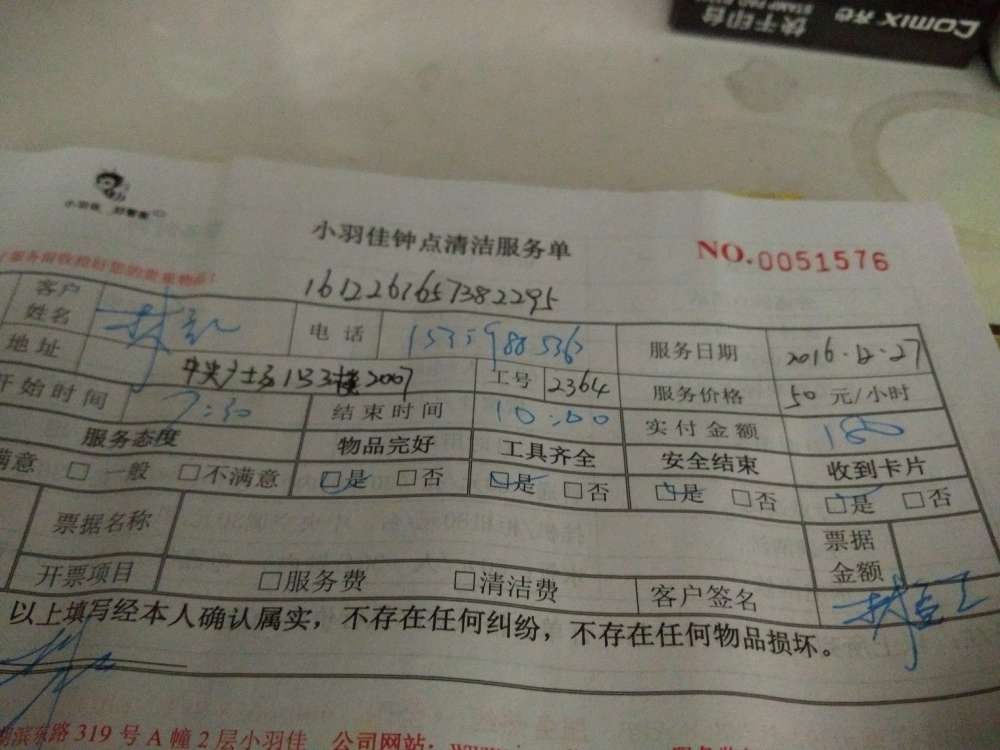 Comix 齐心
快干印台
STAMP PAD
小羽佳钟点清洁服务单
NO.0051576
1612261657382295
客户姓名
电话
服务日期 2016.12.27
地址
工号 2364
服务价格 50 元/小时
开始时间 7:30
结束时间 10:00
实付金额 180
服务态度
物品完好
工具齐全
安全结束
收到卡片
满意 □ 一般 □不满意
□是 □否
□是 □否
□是 □否
□是 □否
票据名称
票据金额
开票项目
□服务费
□清洁费
客户签名
以上填写经本人确认属实，不存在任何纠纷，不存在任何物品损坏。
路 319 号 A 幢 2 层小羽佳 公司网站：